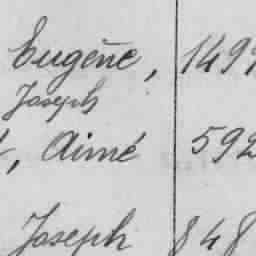 Eugène, 149
Joseph
, Aimé 592
Joseph 848